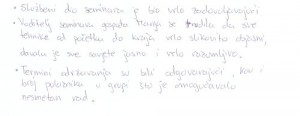 • Službeni dio seminara je bio vrlo zadovoljavajući
• Voditelj seminara gospođa Marija se trudila da sve
tehnike od početka do kraja vrlo slikovito objasni,
davala je sve savjete jasno i vrlo razumljivo.
• Termini održavanja su bili odgovarajući, kao i
broj polaznika u grupi što je omogućavalo
nesmetan rad.